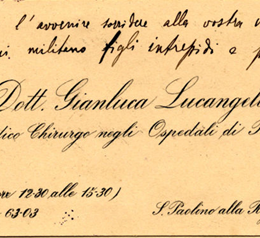 l'avvenire sorridere alla vostra
militano figli intrepidi e
Dott. Gianluca Lucangel
dico Chirurgo negli Ospedali di
ore 12·30 alle 15·30)
63-03
S. Paolino alla R